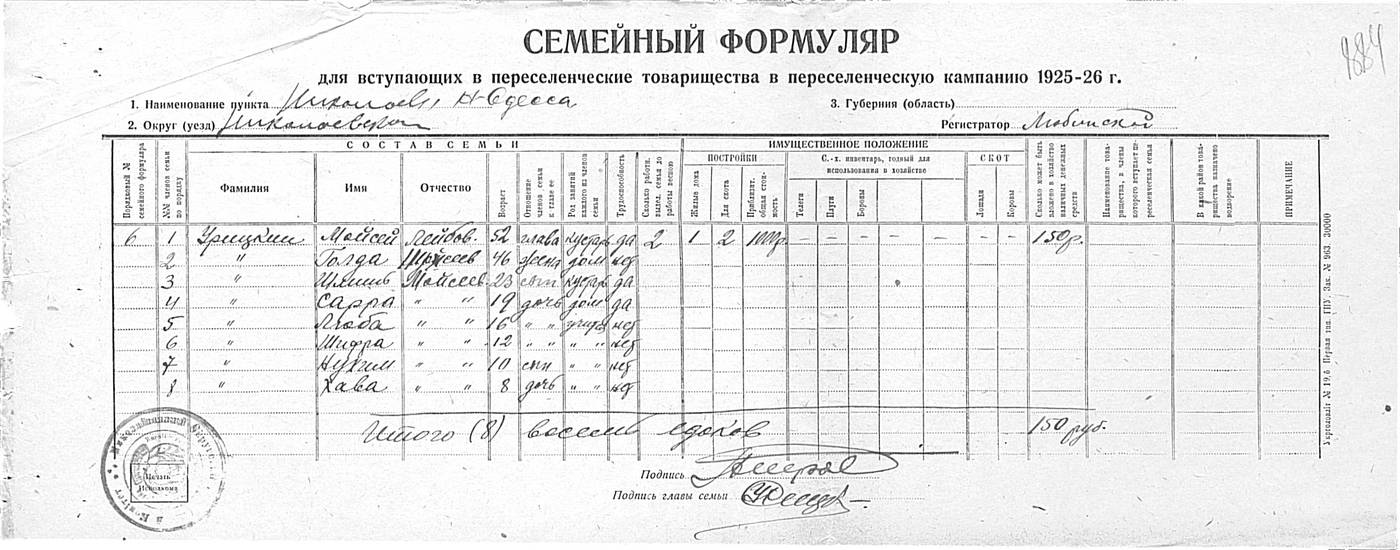 884
СЕМЕЙНЫЙ ФОРМУЛЯР
для вступающих в переселенческие товарищества в переселенческую кампанию 1925-26 г.
1. Наименование пункта Николаев, Н-Одесса 3. Губерния (область)
2. Округ (уезд) Николаевский Регистратор
СОСТАВ СЕМЬИ ИМУЩЕСТВЕННОЕ ПОЛОЖЕНИЕ
ПОСТРОЙКИ С.-х. инвентарь, годный для использования в хозяйстве СКОТ
Порядковый № семейного формуляра №№ членов семьи по порядку Фамилия Имя Отчество Возраст Отношение членов семьи к главе ее Род занятий каждого из членов семьи Трудоспособность Сколько работн. выдел. семья до работы весною Жилые дома Для скота Приблизит. общая стоимость Телеги Плуги Бороны Лошади Коровы Сколько может быть вложено в хозяйство наличных денежных средств Наименование товарищества, в члены которого вступает переселенческая семья В какой район товарищества назначено водворение ПРИМЕЧАНИЕ
6 1 Урицкий Мойсей Лейбов. 52 глава кустарь да 2 1 2 1000р. – – – – – – – 150р.
2 " Голда 46 жена дом нет
3 " Мойсеев. 23 сын кустарь да
4 " Сарра " " 19 дочь дом да
5 " Люба " " 16 " " нет
6 " Шифра " " 12 " " " " нет
7 " Нухим " " 10 сын " " нет
8 " Хава " " 8 дочь " " нет
Итого (8) восемь едоков 150 руб.
Подпись
Подпись главы семьи
Печать Исполкома
Укрголовліт № 19.6 Первая тип. ГПУ. Зак. № 963 30000